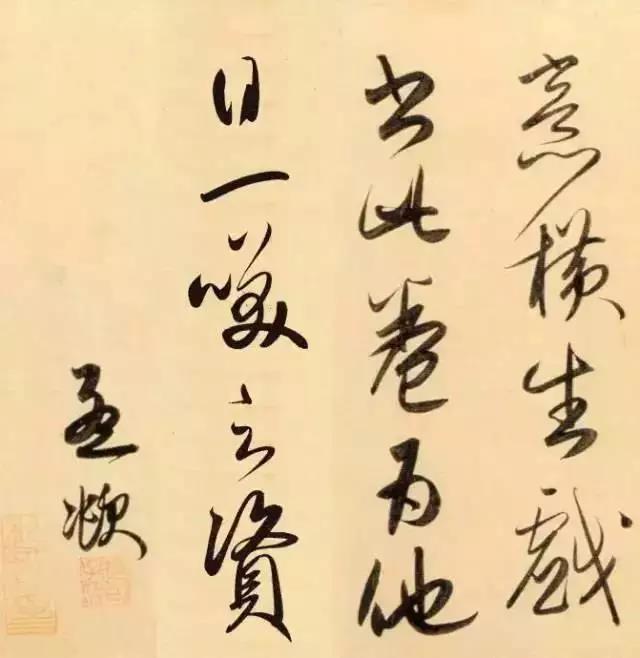 意横生戏
书此卷为他
日一笑之资
孟頫